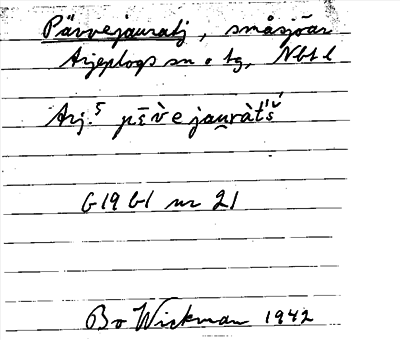 Pärvejauratj, småsjöar
Arjeplogs sn o tg, Nbt l
Arj.5 pɛ̄ὺe jauràt́š́
G19 b1 nr 21
Bo Wickman 1942